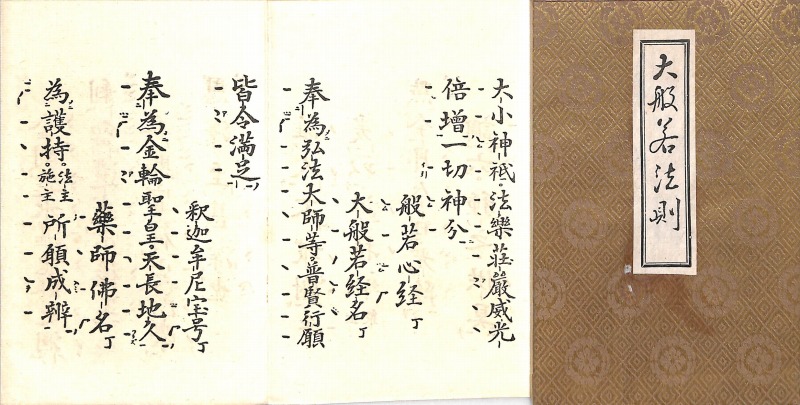 大般若法則
大小神祇法樂荘嚴威光
倍増一切神分
般若心経丁
大般若経名丁
奉為弘法大師等普賢行願
皆令満足
釈迦牟尼宝号丁
奉為金輪聖皇天長地久
藥師佛名丁
為護持法主施主所願成辨